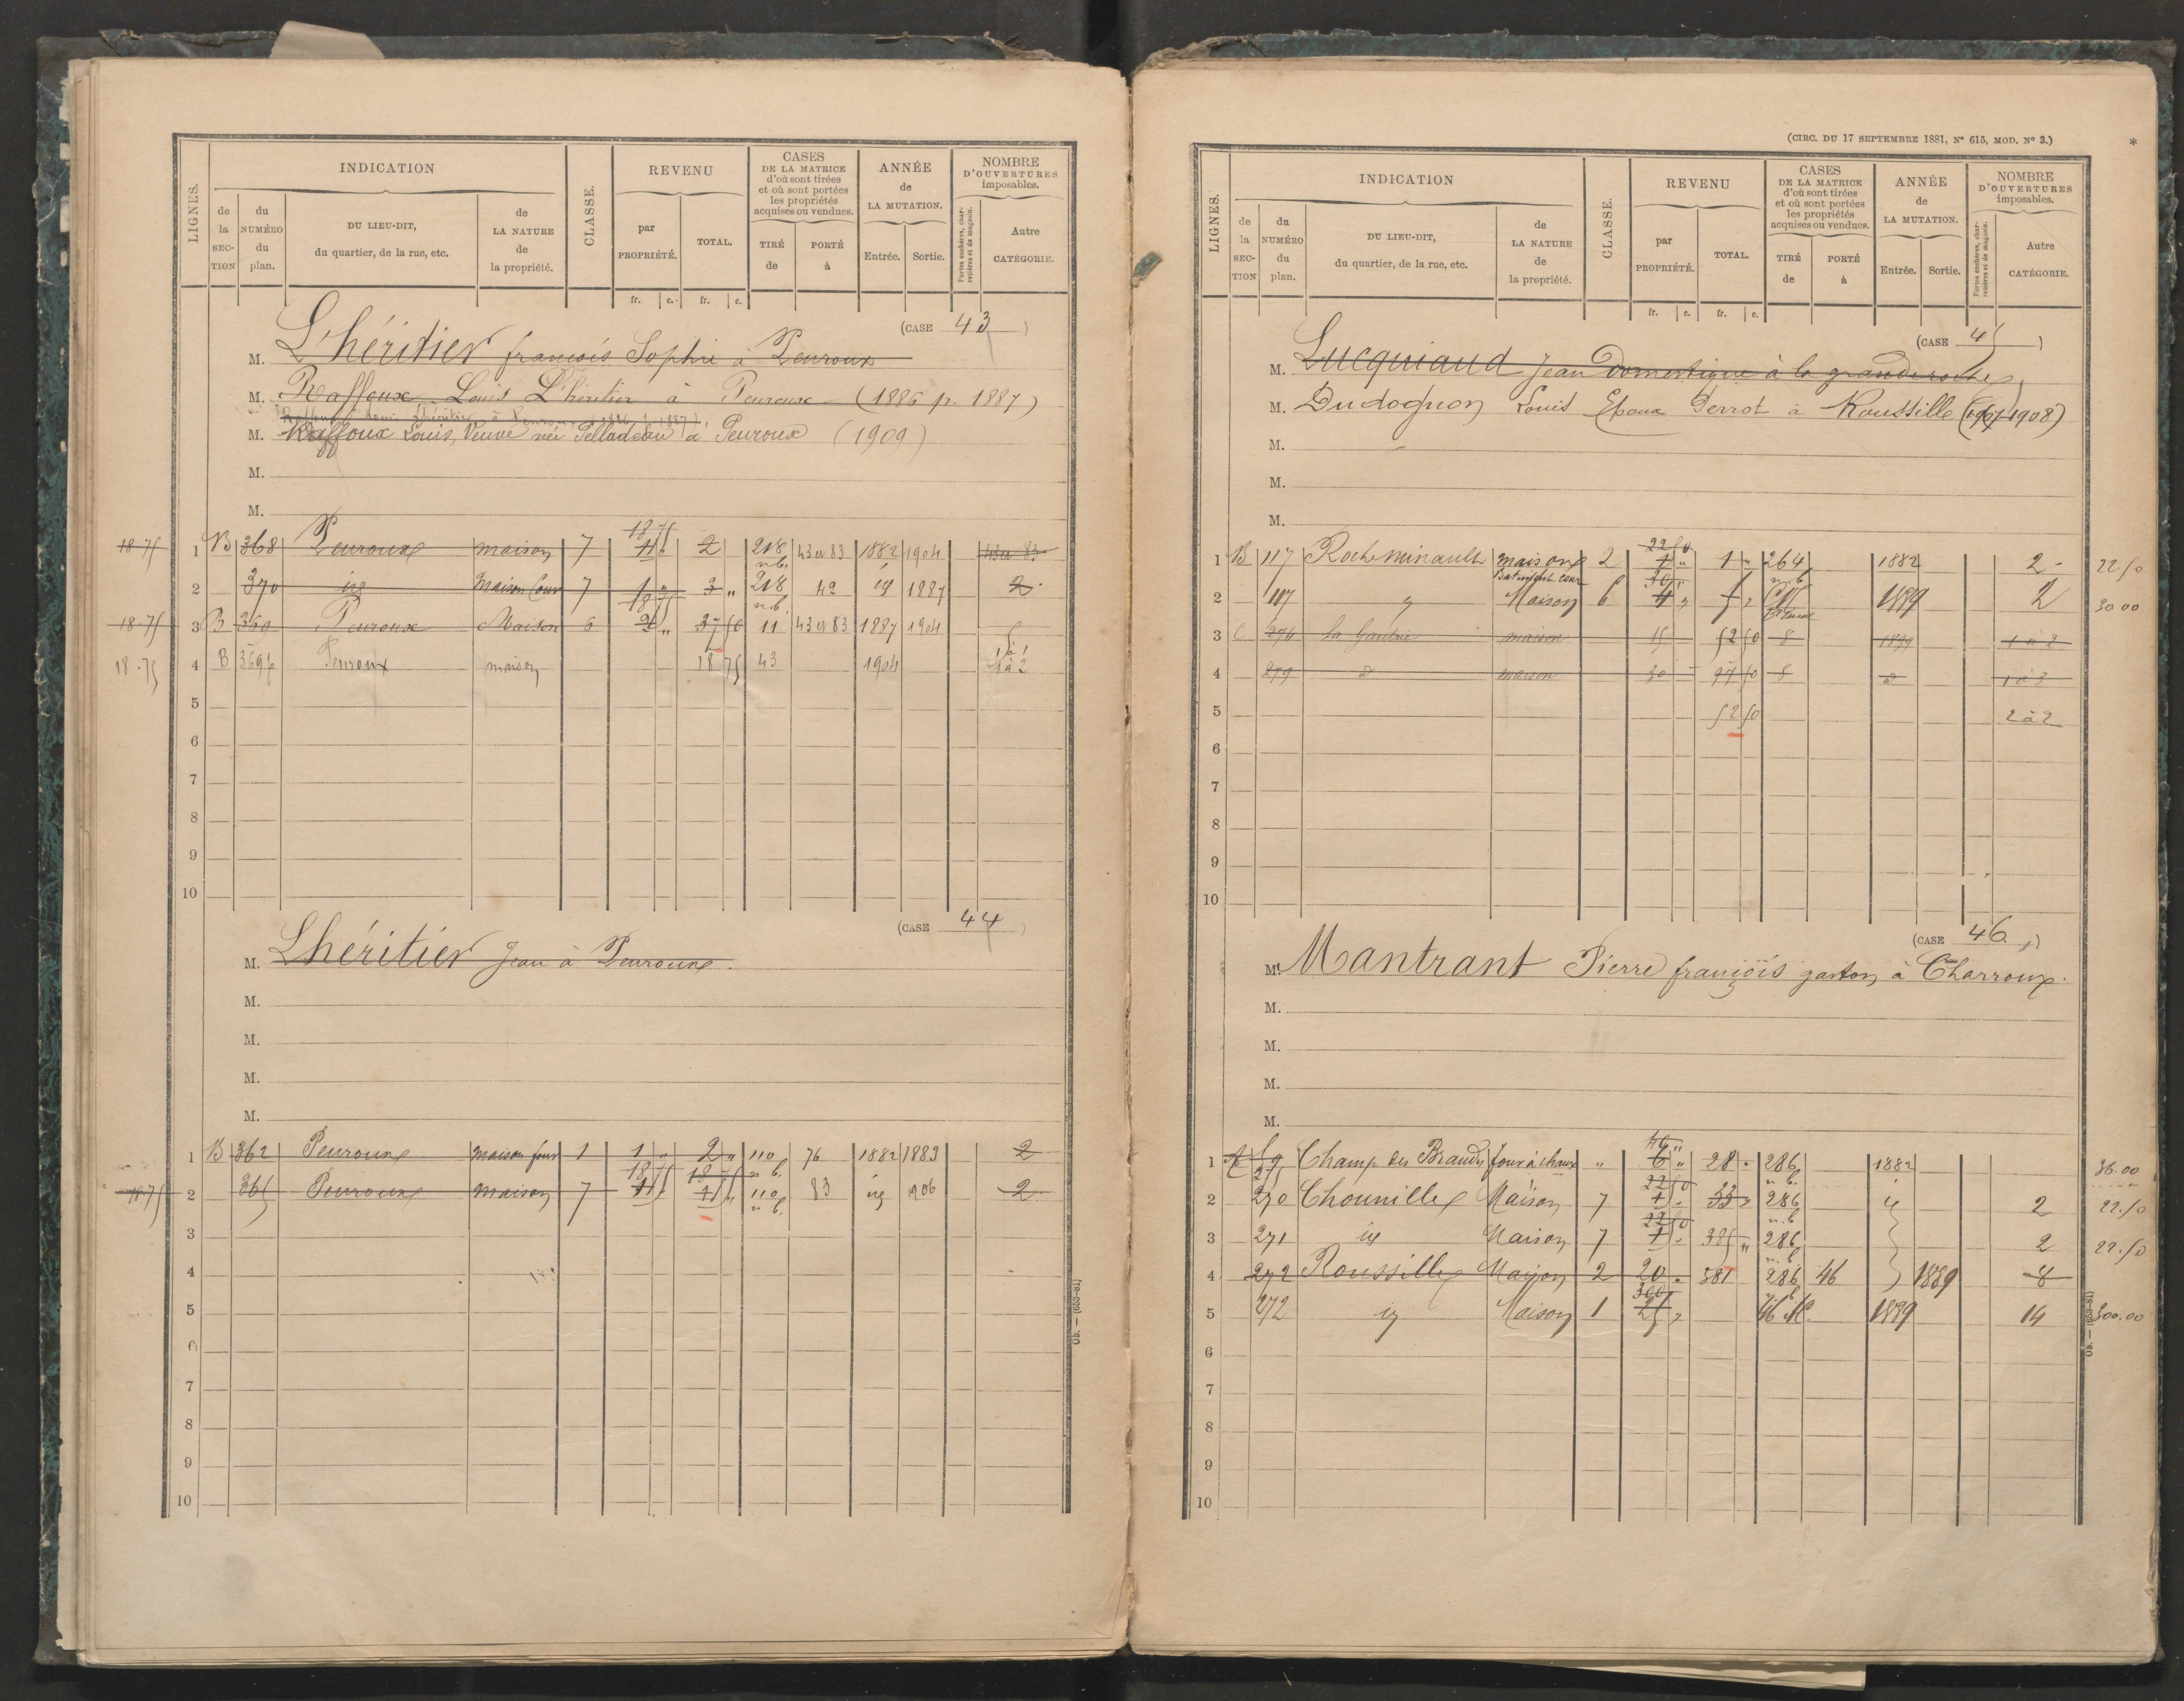 INDICATION
REVENU
CASES
DE LA MATRICE
d'où sont tirées
et où sont portées
les propriétés
acquises ou vendues.
ANNÉE
de
LA MUTATION.
NOMBRE
D'OUVERTURES
imposables.
LIGNES.
de la SECTION
du NUMÉRO du plan.
DU LIEU-DIT,
du quartier, de la rue, etc.
de LA NATURE de la propriété.
CLASSE.
par PROPRIÉTÉ.
TOTAL.
TIRÉ de
PORTÉ à
Entrée.
Sortie.
Portes cochères, charretières et de magasin.
Autre CATÉGORIE.
fr. c. fr. c.
(CASE 43)
M. L'héritier françois Sophie à Peuroux
M. Raffoux Louis L'héritier à Peuroux (1886 p. 1887)
M. Raffoux Louis, Veuve née Pelladeau à Peuroux (1909)
M.
M.
18-75 1 B 368 Peuroux maison 7 18 75 2 218 n.b. 43 et 83 1882 1904
2 370 id Maison Cour 7 1 3 " 218 n.b. 42 id 1887 2
18-75 3 B 369 Peuroux Maison 6 18 75 37 50 11 43 et 83 1887 1904
18-75 4 B 369p Peuroux maison 18 75 43 1904 1 à 2
5
6
7
8
9
10
(CASE 44)
M. Lhéritier Jean à Peuroux.
M.
M.
M.
M.
1 B 362 Peuroux maison four 1 1 " 2 " 110 76 1882 1883 2
18-75 2 365 Peuroux maison 7 18 75 18 75 110 n.b. 83 id 906 2
3
4
5
6
7
8
9
10
Ob. — (653-81)
(CIRC. DU 17 SEPTEMBRE 1881, N° 615, MOD. N° 3.)
*
INDICATION
REVENU
CASES
DE LA MATRICE
d'où sont tirées
et où sont portées
les propriétés
acquises ou vendues.
ANNÉE
de
LA MUTATION.
NOMBRE
D'OUVERTURES
imposables.
LIGNES.
de la SECTION
du NUMÉRO du plan.
DU LIEU-DIT,
du quartier, de la rue, etc.
de LA NATURE de la propriété.
CLASSE.
par PROPRIÉTÉ.
TOTAL.
TIRÉ de
PORTÉ à
Entrée.
Sortie.
Portes cochères, charretières et de magasin.
Autre CATÉGORIE.
fr. c. fr. c.
(CASE 45)
M. Lucquiaud Jean Domestique à la granderoche
M. Dudognon Louis Epoux Perrot à Roussille (1908)
M.
M.
M.
1 B 117 Rocheminault maison 2 22 50 1 " 264 n.b. 1882 2 22 50
2 117 id Maison 6 30 " 5 " 1889 2 30 00
3 C 274 la Gautrie maison 15 52 50 8 1899 1 à 2
4 279 d maison 30 97 50 8 d 1 à 3
5 52 50 2 à 2
6
7
8
9
10
(CASE 46)
M. Mantrant Pierre françois gaston à Charroux.
M.
M.
M.
M.
1 A 59 Champ des Brandes four à chaux " 6 " 28 " 286 n.b. 1882 36.00
2 270 Chounille Maison 7 22 50 33 " 286 n.b. id 2 22.50
3 271 id Maison 7 22 50 385 " 286 n.b. 2 22.50
4 272 Roussille Maison 2 20 " 381 286 46 1889 8
5 272 id Maison 1 300 25 " 46 1889 14 300.00
6
7
8
9
10
Ob. — (653-81)